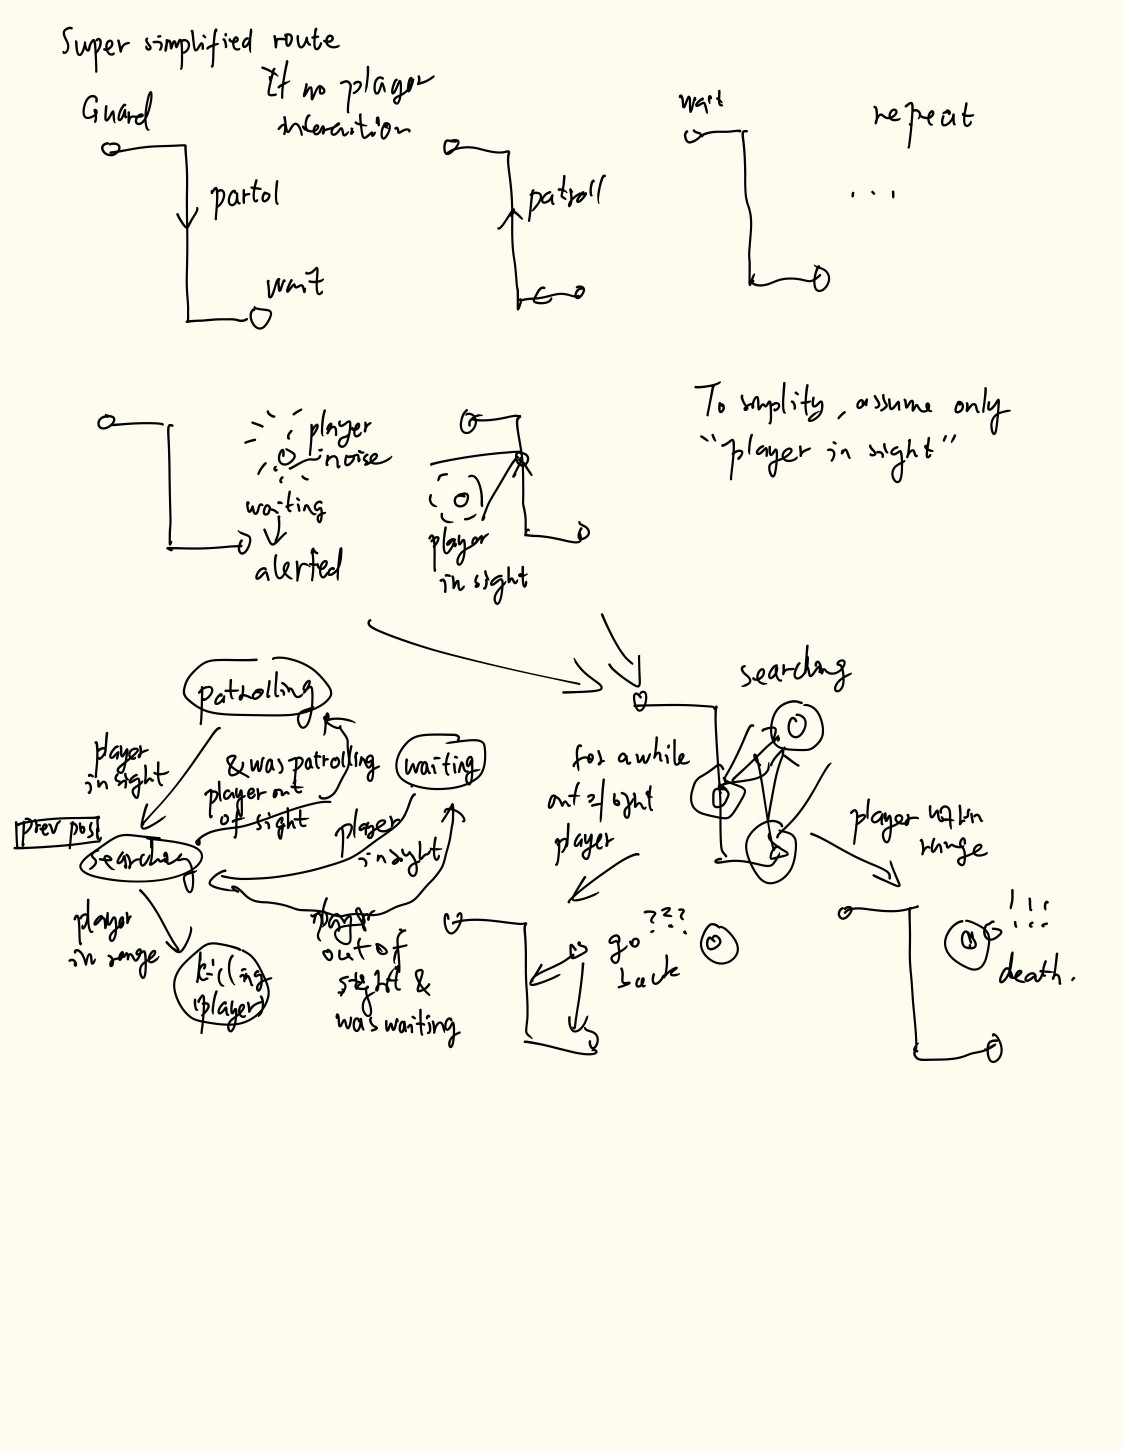 Super simplified route
If no player
interaition
Guard
partol
wait
patroll
wait
repeat
...
player
noise
waiting
alerted
player
in sight
To smplify, assume only
"player in sight"
patrolling
player
in sight
& was patrolling
player out
of sight
waiting
player
in sight
prev post
searching
player
in range
killing
player
player
out of
sight &
was waiting
searching
for a while
out of sight
player
go
back
???
player within
range
!!!
death.